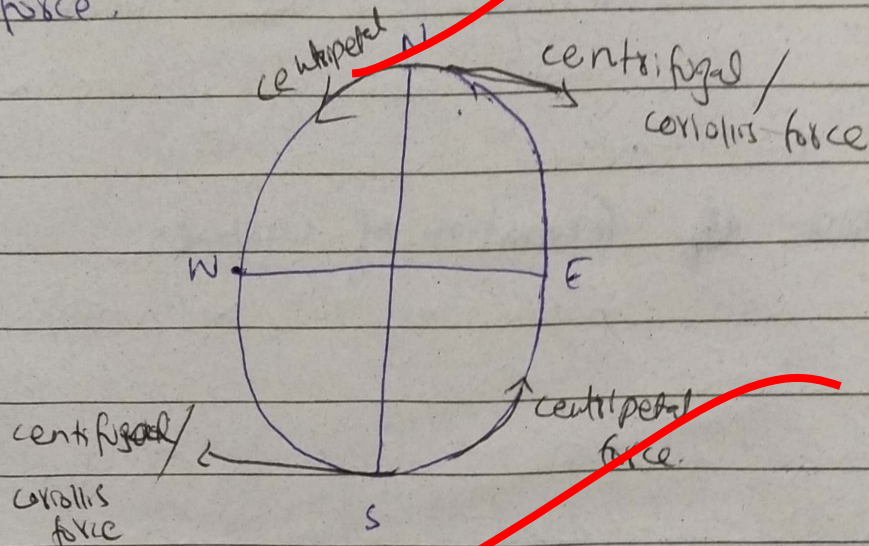 force.
N
centripetal
centrifugal /
coriollis force
W
E
centripetal
force.
centifugal/
coriollis
force
S